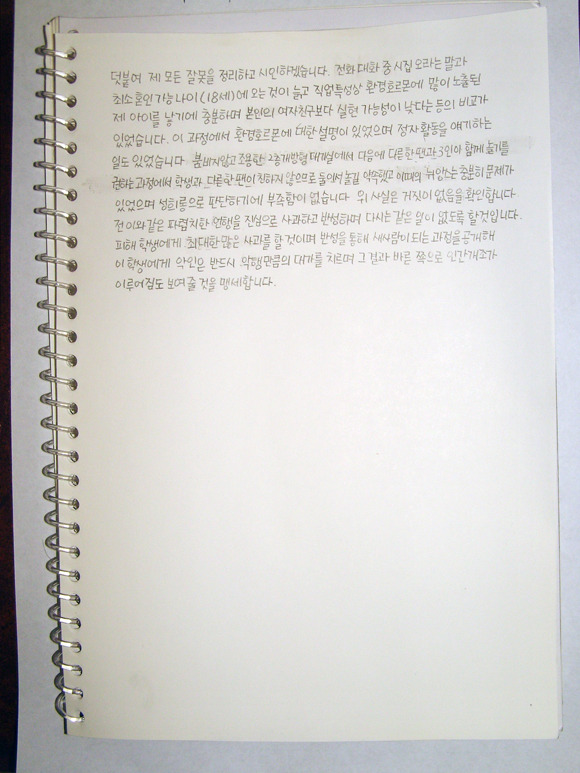 덧붙여 제 모든 잘못을 정리하고 시인하겠습니다. 전화 대화 중 시집 오라는 말과
최소 혼인 가능 나이(18세)에 오는 것이 늦고 직업특성상 환경호르몬에 많이 노출된
제 아이를 낳기에 충분하며 본인의 여자친구보다 실현 가능성이 낮다는 등의 비교가
있었습니다. 이 과정에서 환경호르몬에 대한 설명이 있었으며 정자 활동을 얘기하는
일도 있었습니다. 붐비지않고 조용한 2층개방형 대기실에서 다음에 다른 한 팬과 3인이 함께 놀기를
권하는 과정에서 학생과 다른 한 팬이 친하지 않으므로 둘이서 놀길 약속했고 이때의 뉘앙스는 충분히 문제가
있었으며 성희롱으로 판단하기에 부족함이 없습니다. 위 사실은 거짓이 없음을 확인합니다.
전 이와같은 파렴치한 언행을 진심으로 사과하고 반성하며 다시는 같은 일이 없도록 할 것입니다.
피해 학생에게 최대한 많은 사과를 할 것이며 반성을 통해 새사람이 되는 과정을 공개해
이 학생에게 악인은 반드시 악행만큼의 대가를 치르며 그 결과 바른 쪽으로 인간개조가
이루어짐도 보여 줄 것을 맹세합니다.